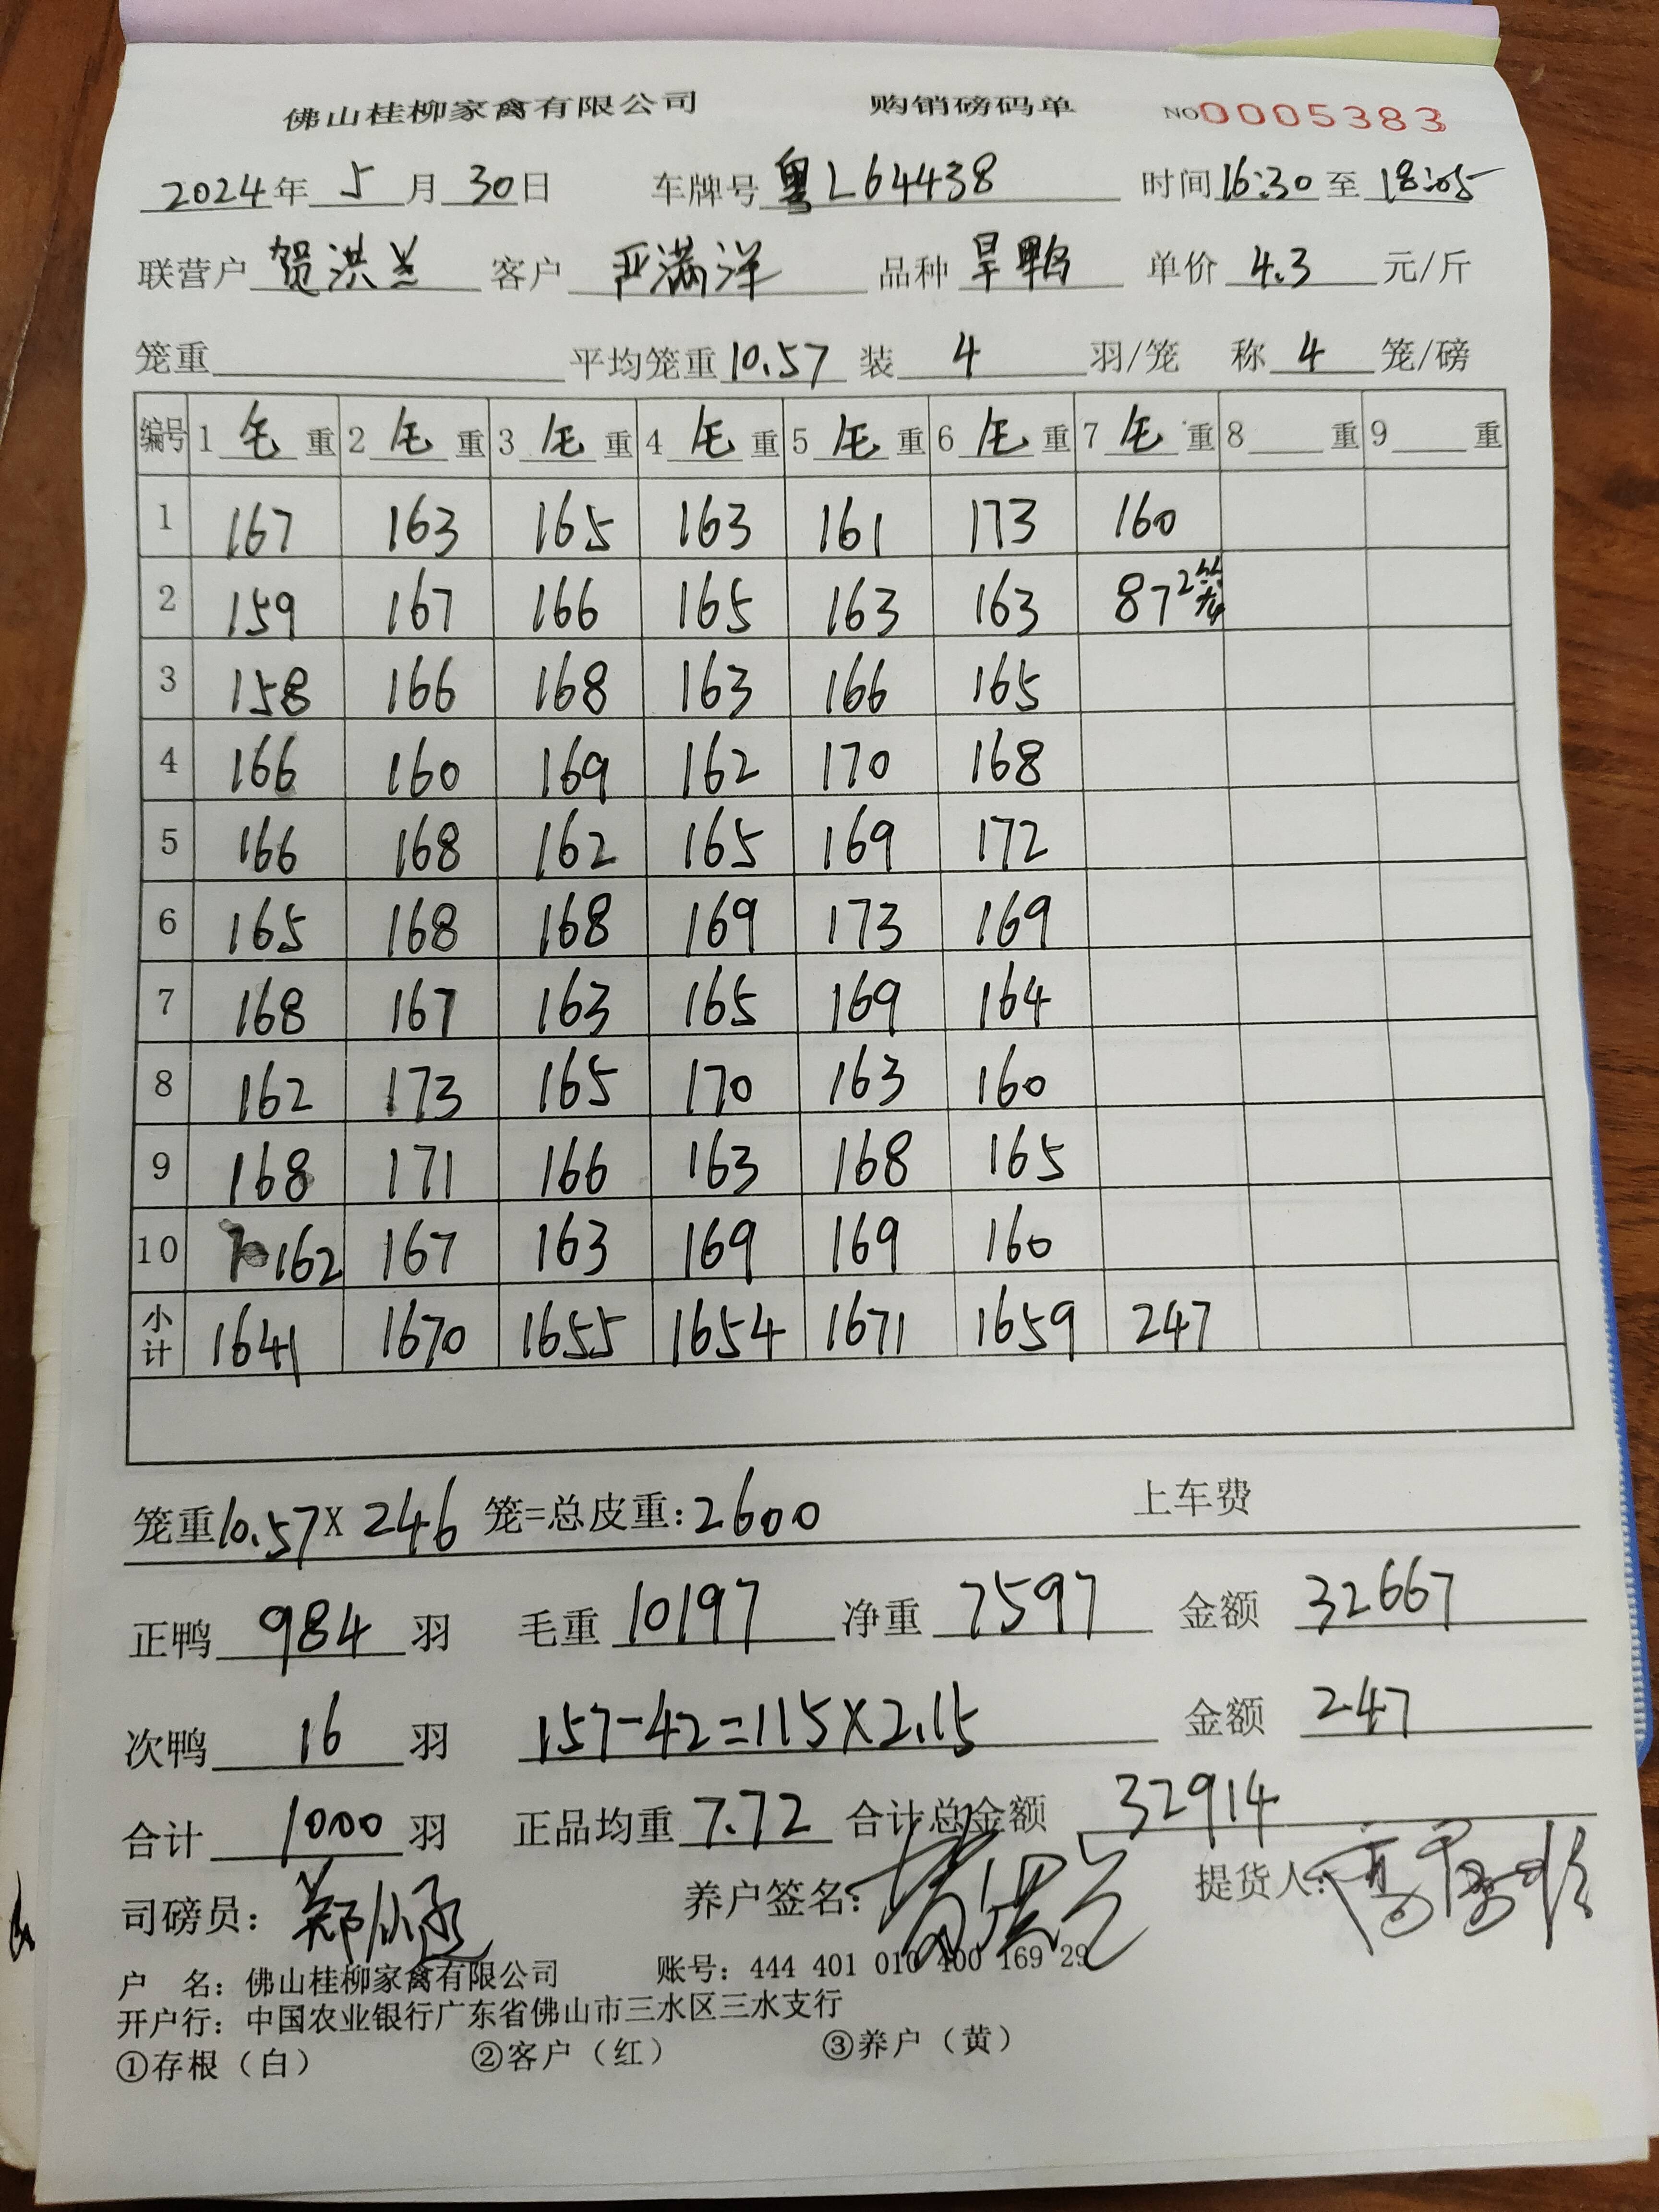 佛山桂柳家禽有限公司 购销磅码单 NO0005383
2024年 5 月 30日 车牌号 粤L64438 时间 16:30 至 18:05
联营户 贺洪兰 客户 严满洋 品种 旱鸭 单价 4.3 元/斤
笼重 平均笼重 10.57 装 4 羽/笼 称 4 笼/磅
编号 1 毛 重 2 毛 重 3 毛 重 4 毛 重 5 毛 重 6 毛 重 7 毛 重 8 重 9 重
1 167 163 165 163 161 173 160
2 159 167 166 165 163 163 87 2笼
3 158 166 168 163 166 165
4 166 160 169 162 170 168
5 166 168 162 165 169 172
6 165 168 168 169 173 169
7 168 167 163 165 169 164
8 162 173 165 170 163 160
9 168 171 166 163 168 165
10 162 167 163 169 169 160
小计 1641 1670 1655 1654 1671 1659 247
笼重10.57X 246 笼=总皮重:2600 上车费
正鸭 984 羽 毛重 10197 净重 7597 金额 32667
次鸭 16 羽 157-42=115X2.15 金额 247
合计 1000 羽 正品均重 7.72 合计总金额 32914
司磅员: 养户签名: 贺洪兰 提货人:
户 名:佛山桂柳家禽有限公司 账号:444 401 010 400 169 29
开户行:中国农业银行广东省佛山市三水区三水支行
①存根(白) ②客户(红) ③养户(黄)